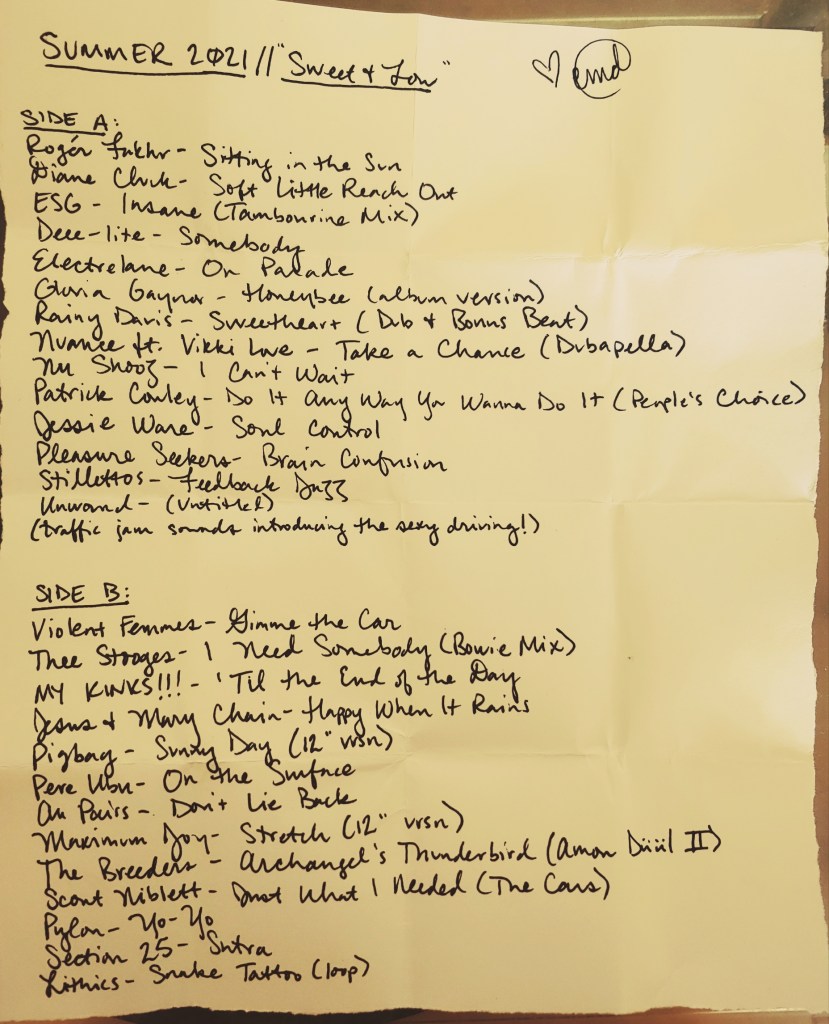 SUMMER 2021 // "Sweet & Low"
♡ emd
SIDE A:
Rogér Fakhr - Sitting in the Sun
Diane Cluck - Soft Little Reach Out
ESG - Insane (Tambourine Mix)
Deee-lite - Somebody
Electrelane - On Parade
Gloria Gaynor - Honeybee (album version)
Rainy Davis - Sweetheart (Dub & Bonus Beat)
Nuance ft. Vikki Love - Take a Chance (Dubapella)
Nu Shooz - I Can't Wait
Patrick Cowley - Do It Any Way You Wanna Do It (People's Choice)
Jessie Ware - Soul Control
Pleasure Seekers - Brain Confusion
Stillettos - Feedback Juzz
Unwound - (Untitled)
(traffic jam sounds introducing the sexy driving!)
SIDE B:
Violent Femmes - Gimme the Car
Thee Stooges - I Need Somebody (Bowie Mix)
MY KINKS!!! - 'Til the End of the Day
Jesus & Mary Chain - Happy When It Rains
Pigbag - Sunny Day (12" vrsn)
Pere Ubu - On the Surface
Au Pairs - Don't Lie Back
Maximum Joy - Stretch (12" vrsn)
The Breeders - Archangel's Thunderbird (Amon Düül II)
Scout Niblett - Just What I Needed (The Cars)
Pylon - Yo-Yo
Section 25 - Sutra
Lithics - Snake Tattoo (loop)